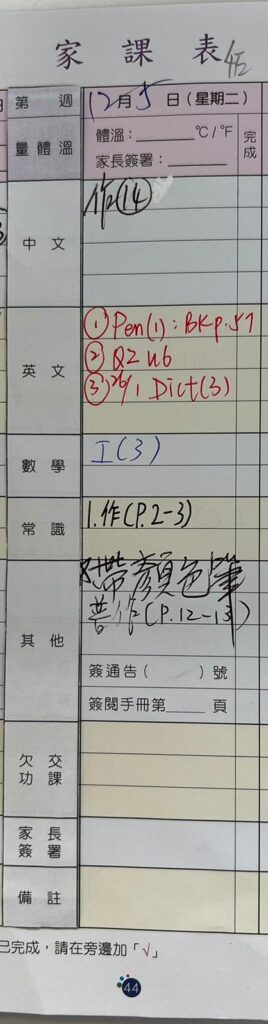 家課表
第 週 12月5日(星期二)
量體溫 體溫:______ °C/°F 完成
家長簽署:______
中文 作⑭
英文 ① Pen(1): BK p.57
② QZ u6
③ 26/1 Dict(3)
數學 I(3)
常識 1.作(P.2-3)
其他 帶顏色筆
普作(P.12-13)
簽通告( )號
簽閱手冊第____頁
欠交功課
家長簽署
備註
已完成,請在旁邊加「√」
44